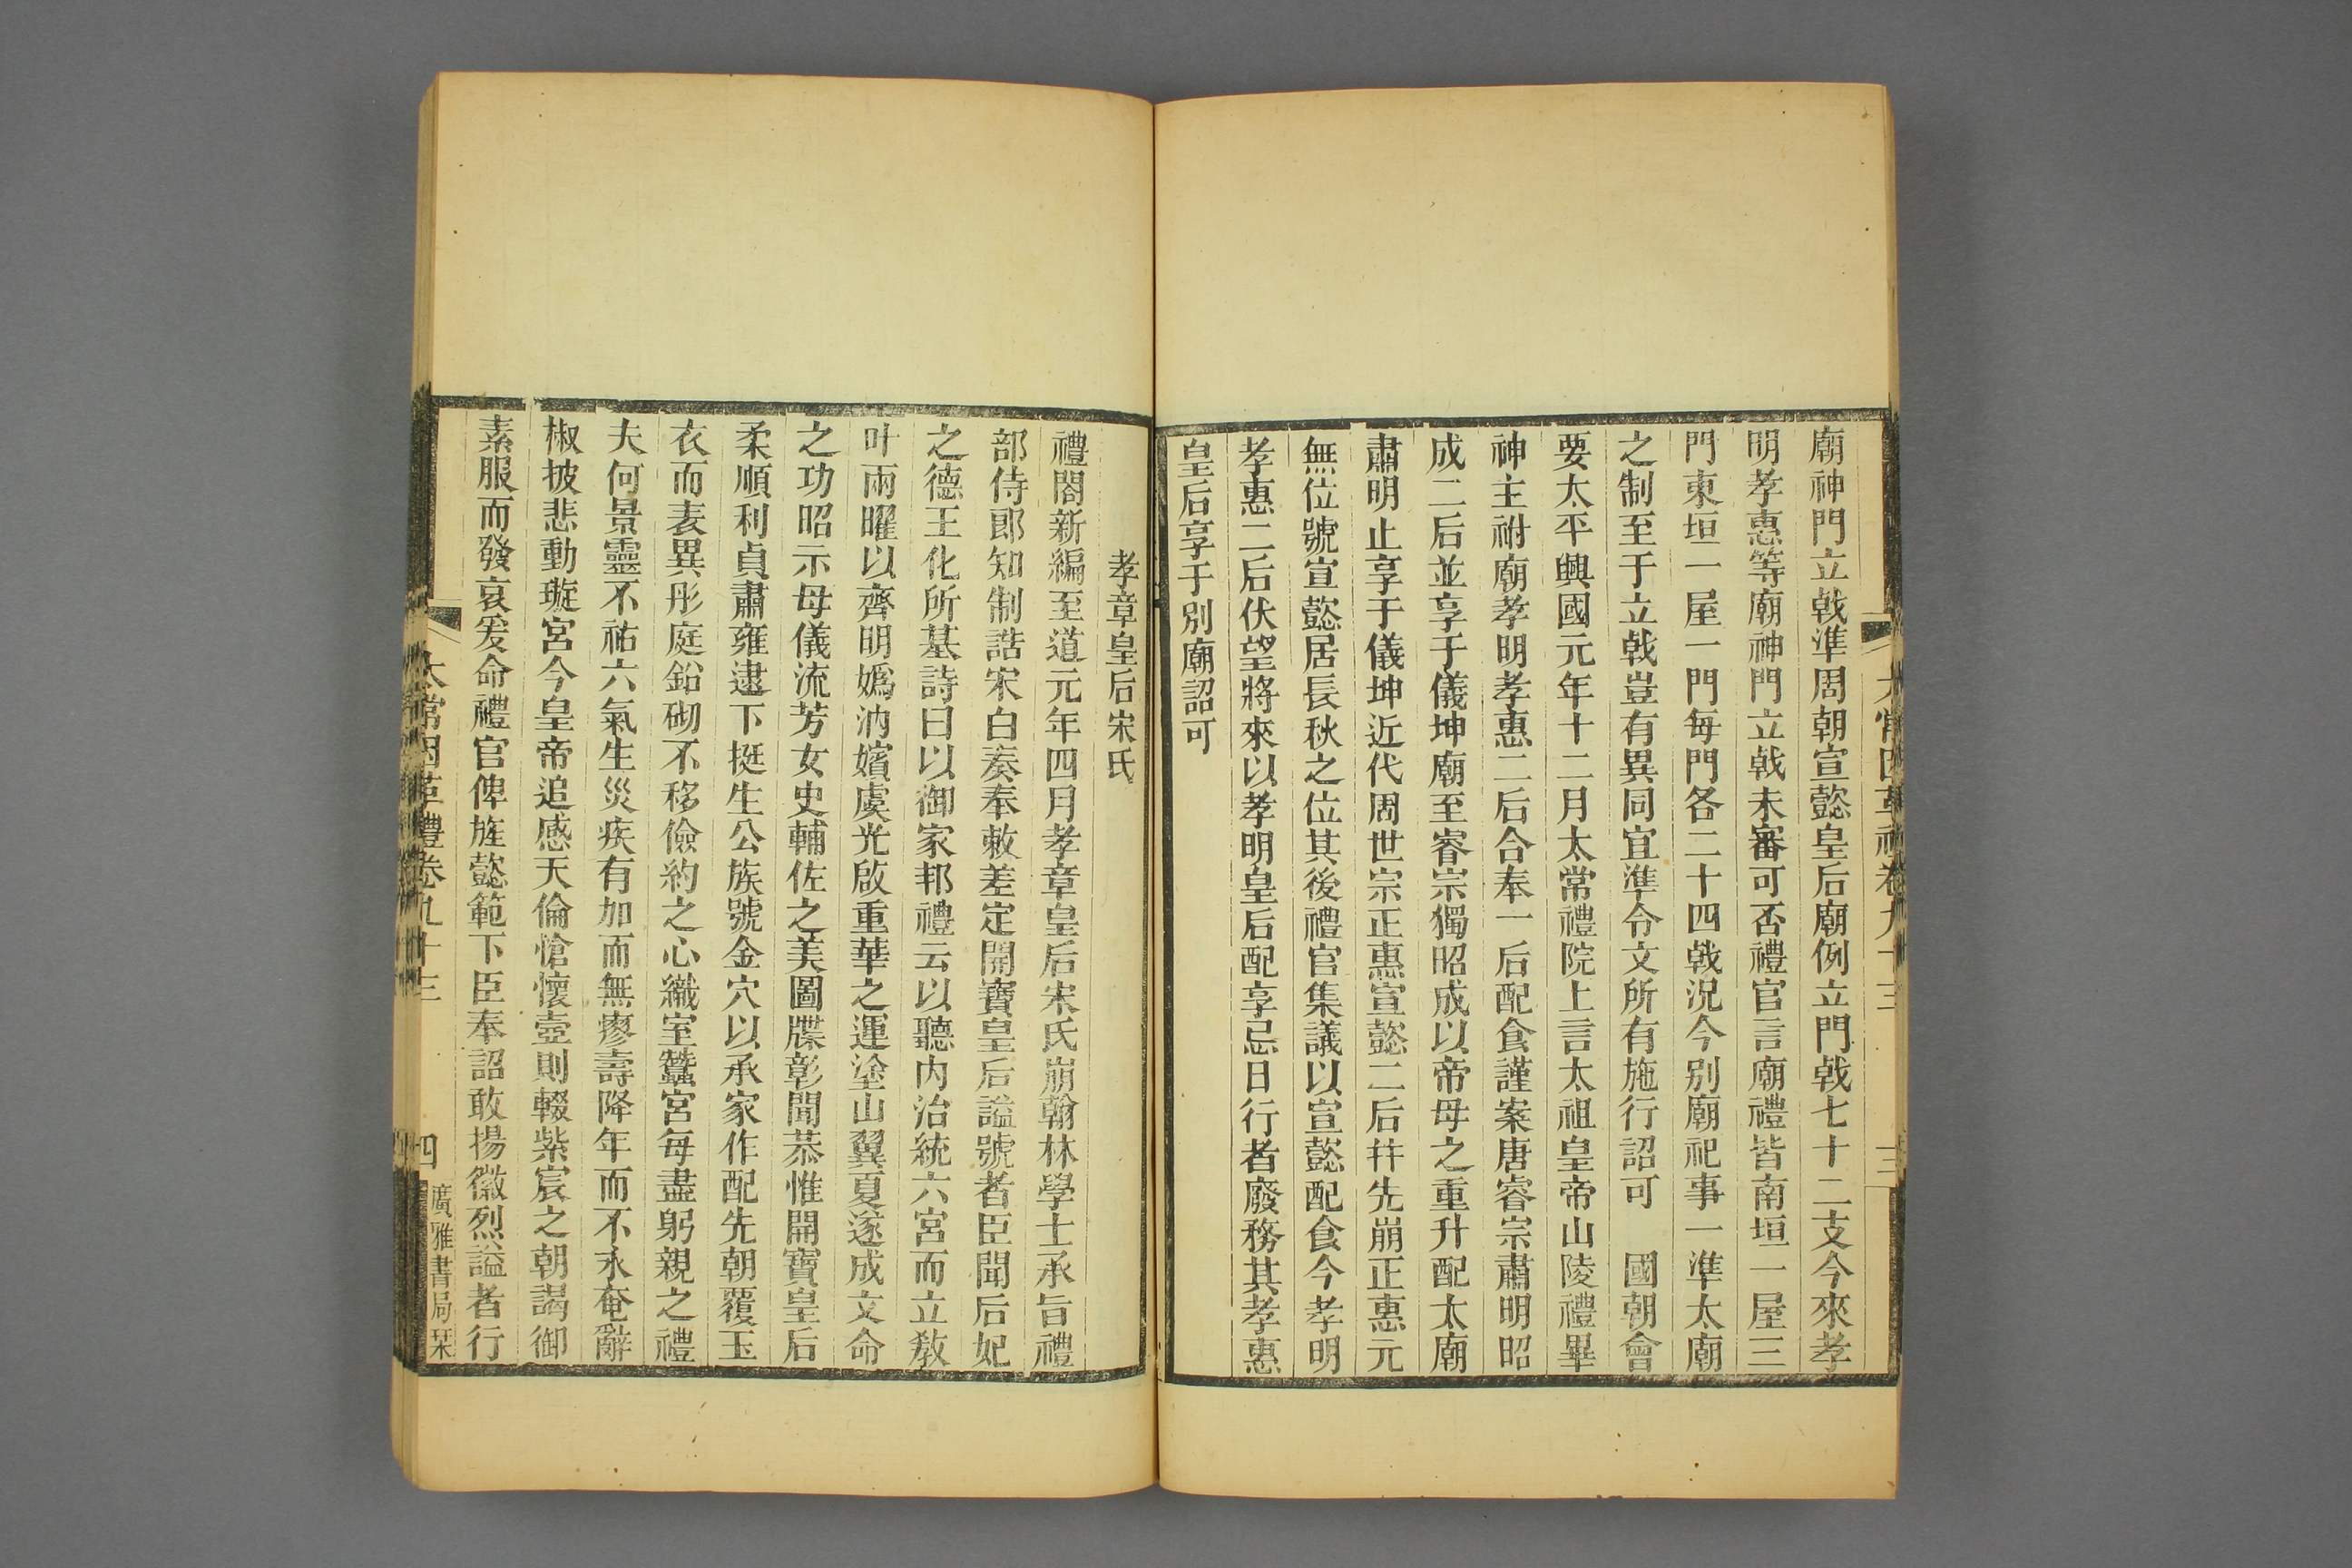 太常因革禮卷九十三
三
廟神門立戟準周朝宣懿皇后廟例立門戟七十二支今來孝
明孝惠等廟神門立戟未審可否禮官言廟禮皆南垣一屋三
門東垣一屋一門每門各二十四戟況今別廟祀事一準太廟
之制至于立戟豈有異同宜準令文所有施行詔可　國朝會
要太平興國元年十二月太常禮院上言太祖皇帝山陵禮畢
神主祔廟孝明孝惠二后合奉一后配食謹案唐睿宗肅明昭
成二后並享于儀坤廟至睿宗獨昭成以帝母之重升配太廟
肅明止享于儀坤近代周世宗正惠宣懿二后幷先崩正惠元
無位號宣懿居長秋之位其後禮官集議以宣懿配食今孝明
孝惠二后伏望將來以孝明皇后配享忌日行者廢務其孝惠
皇后享于別廟詔可
孝章皇后宋氏
禮閣新編至道元年四月孝章皇后宋氏崩翰林學士承旨禮
部侍郎知制誥宋白奏奉敕差定開寶皇后諡號者臣聞后妃
之德王化所基詩曰以御家邦禮云以聽內治統六宮而立教
叶兩曜以齊明嬀汭嬪虞光啟重華之運塗山翼夏遂成文命
之功昭示母儀流芳女史輔佐之美圖牒彰聞恭惟開寶皇后
柔順利貞肅雍逮下挺生公族號金穴以承家作配先朝覆玉
衣而表異彤庭鉛砌不移儉約之心織室蠶宮每盡躬親之禮
夫何景靈不祐六氣生災疾有加而無瘳壽降年而不永奄辭
椒披悲動璇宮今皇帝追感天倫愴懷壼則輟紫宸之朝謁御
素服而發哀爰命禮官俾旌懿範下臣奉詔敢揚徽烈諡者行
太常因革禮卷九十三
四
廣雅書局栞